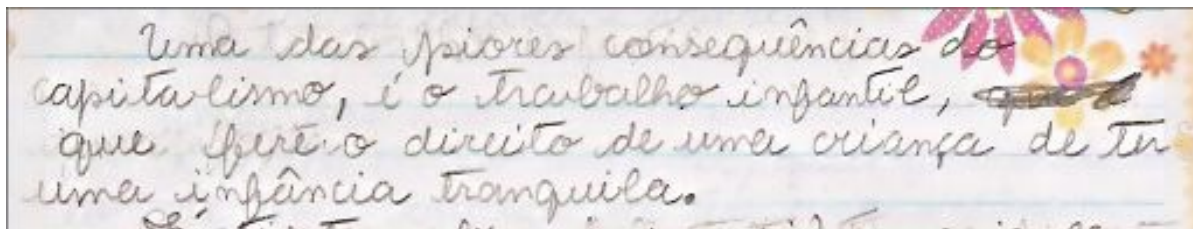 Uma das piores consequências do
capitalismo, é o trabalho infantil,
que fere o direito de uma criança de ter
uma infância tranquila.